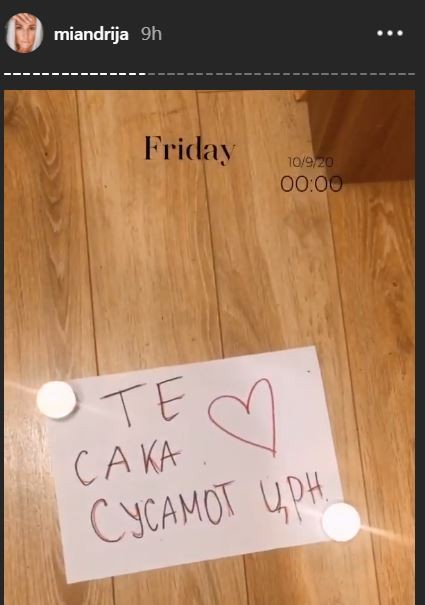 miandrija 9h
Friday
10/9/20
00:00
ТЕ
САКА
СУСАМОТ ЦРН